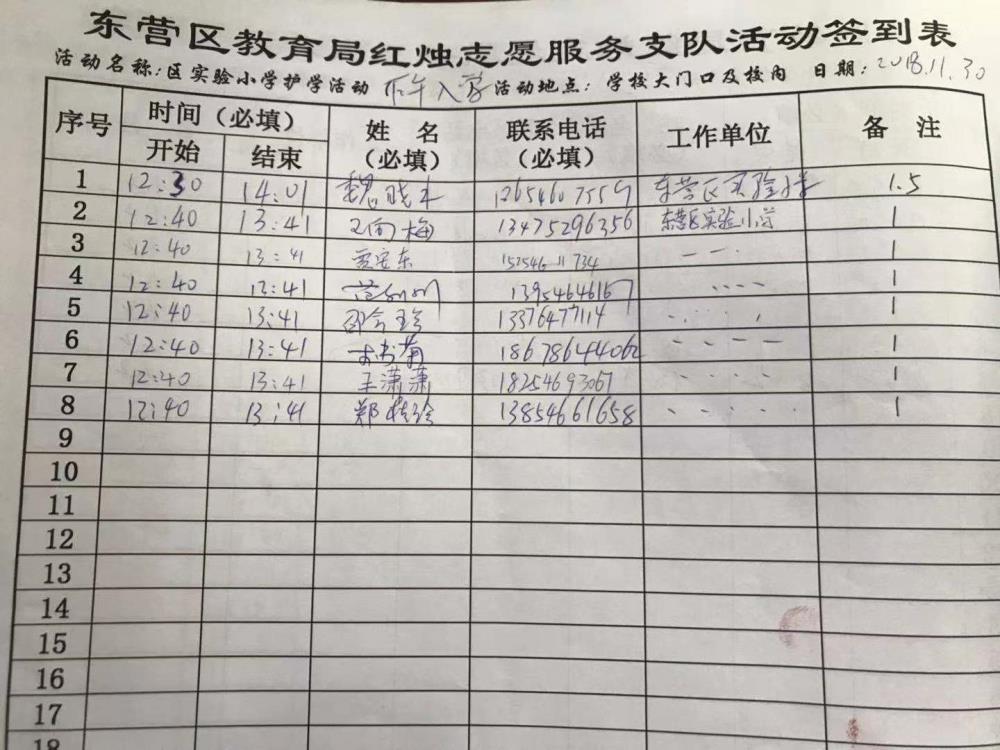 东营区教育局红烛志愿服务支队活动签到表
活动名称:区实验小学护学活动 下午入学 活动地点:学校大门口及校内 日期:2018.11.30
序号 时间(必填) 姓名(必填) 联系电话(必填) 工作单位 备注
开始 结束
1 12:30 14:01 东营区实验小学 1.5
2 12:40 13:41 13475296356 东营区实验小学 1
3 12:40 13:41 1
4 12:40 13:41 1
5 12:40 13:41 13376477114 1
6 12:40 13:41 18678644062 1
7 12:40 13:41 王潇潇 18254693067 1
8 12:40 13:41 13854661658 1
9
10
11
12
13
14
15
16
17
18